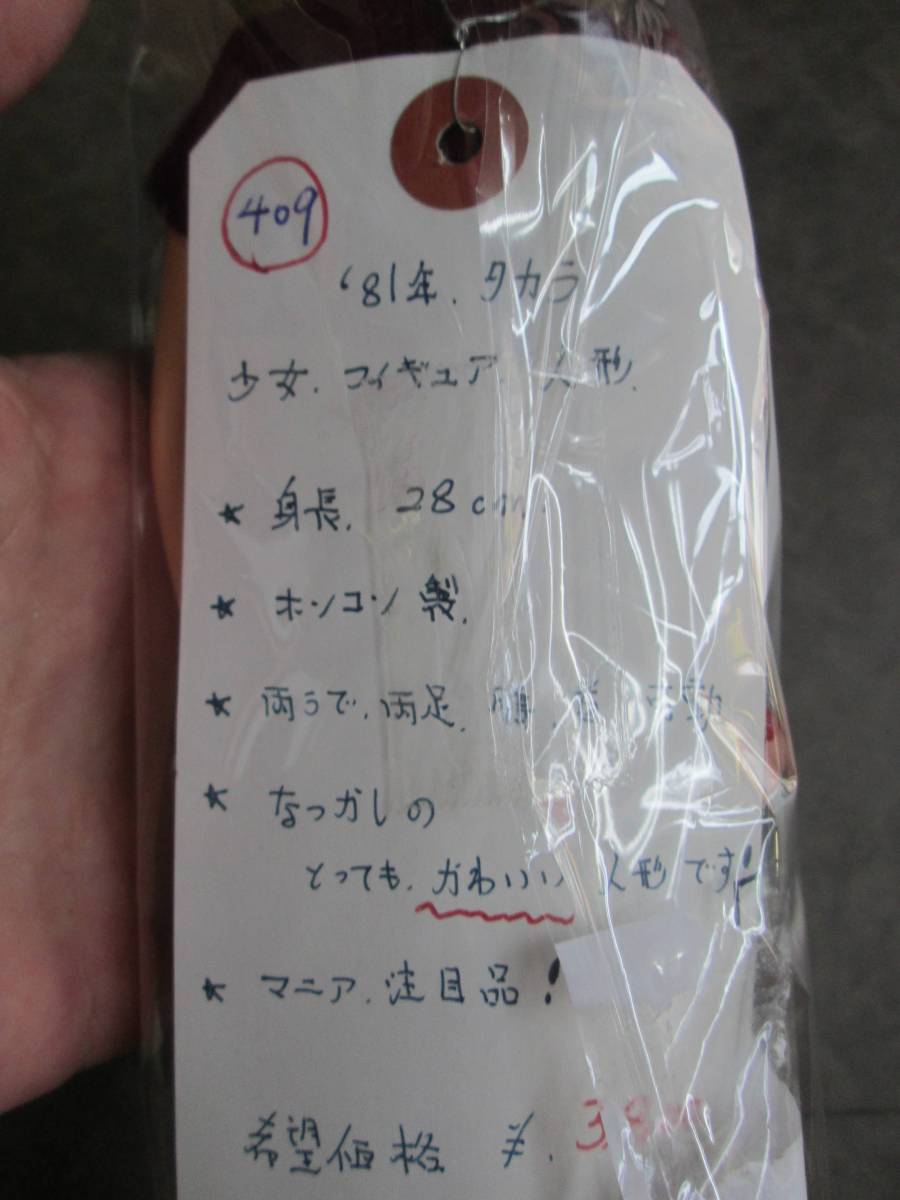 409
'81年.タカラ
少女.フィギュア 人形.
★ 身長. 28cm.
★ ホンコン製.
★ 両うで.両足. 可動
★ なつかしの
とっても.かわいい人形です!
★ マニア.注目品!
希望価格 ¥.